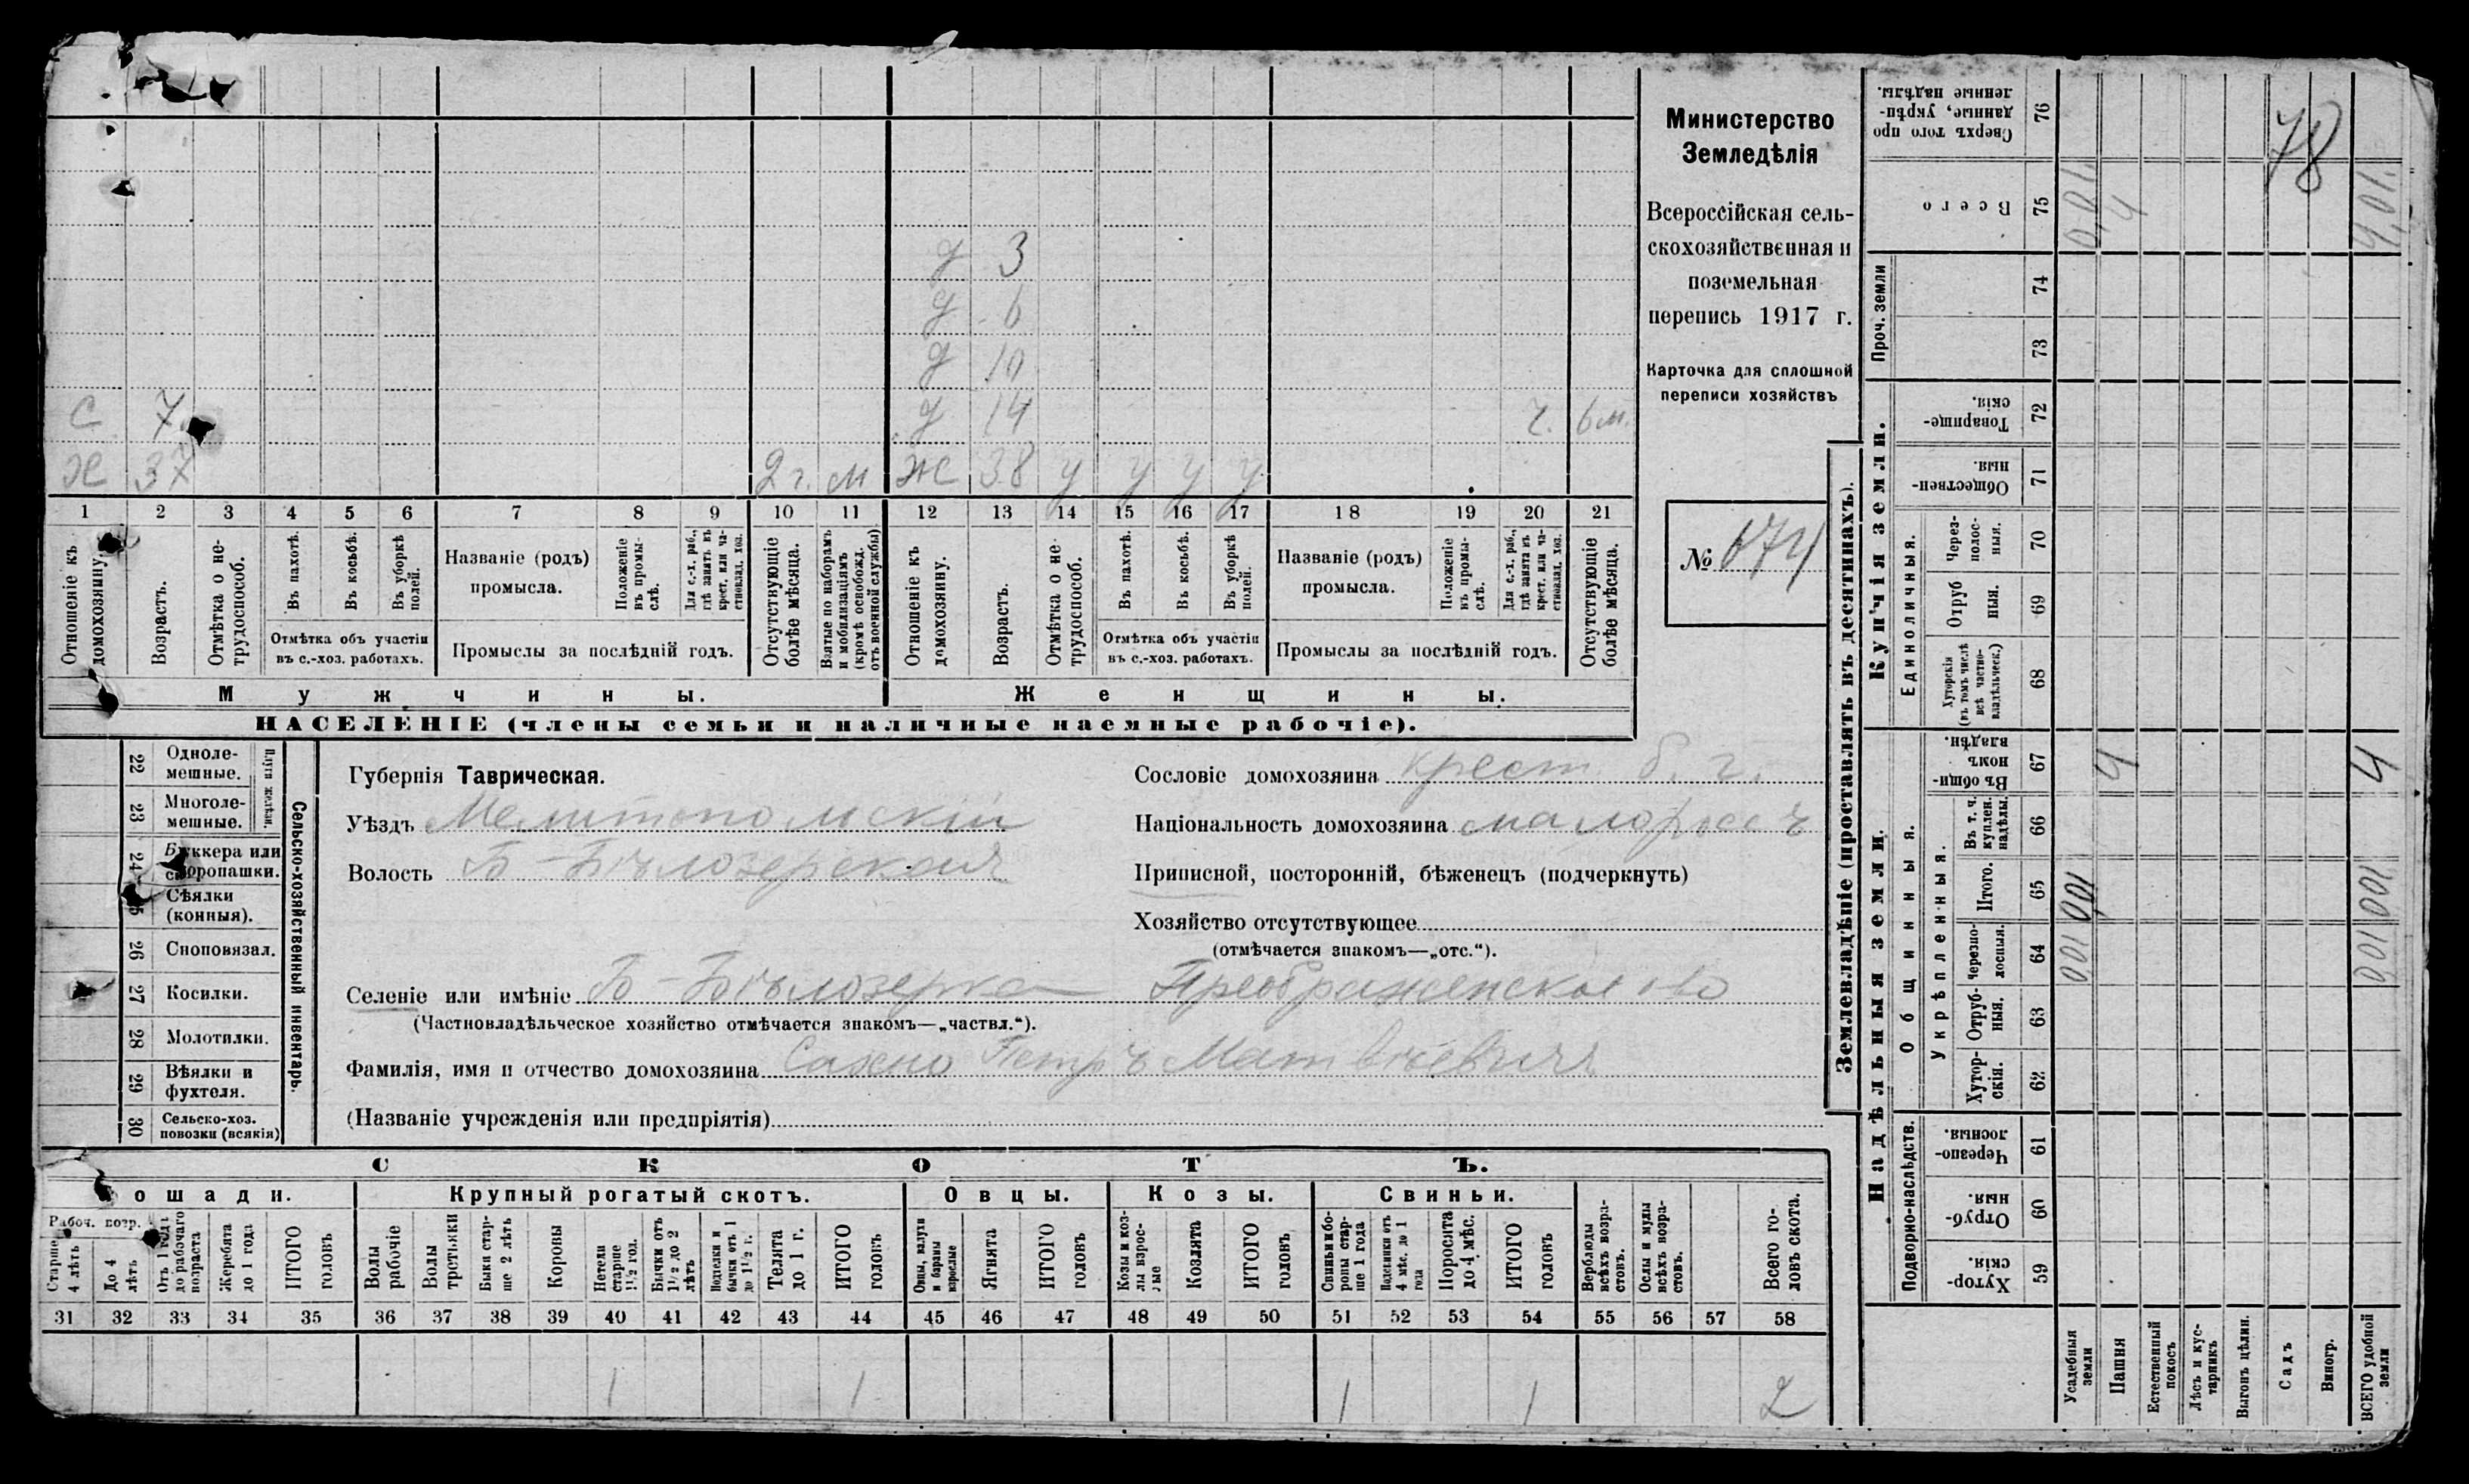 Министерство
Земледѣлія
Всероссійская сель-
скохозяйственная и
поземельная
перепись 1917 г.
Карточка для сплошной
переписи хозяйствъ
№ 674
78
д 3
д 6
д 10
д 14 г. 6 м.
с 7.
х 37 2 г. м ж 38 у у у у
1 2 3 4 5 6 7 8 9 10 11 12 13 14 15 16 17 18 19 20 21
Отношеніе къ домохозяину.
Возрастъ.
Отмѣтка о не-трудоспособ.
Въ пахотѣ.
Въ косьбѣ.
Въ уборкѣ полей.
Отмѣтка объ участіи въ с.-хоз. работахъ.
Названіе (родъ) промысла.
Положеніе въ промы-слѣ.
Для с.-х. раб., гдѣ занятъ въ крест. или ча-стновлад. хоз.
Промыслы за послѣдній годъ.
Отсутствующіе болѣе мѣсяца.
Взятые по наборамъ и мобилизаціямъ (кромѣ освобожд. отъ военной службы)
Отношеніе къ домохозяину.
Возрастъ.
Отмѣтка о не-трудоспособ.
Въ пахотѣ.
Въ косьбѣ.
Въ уборкѣ полей.
Отмѣтка объ участіи въ с.-хоз. работахъ.
Названіе (родъ) промысла.
Положеніе въ промы-слѣ.
Для с.-х. раб., гдѣ занята въ крест. или ча-стновлад. хоз.
Промыслы за послѣдній годъ.
Отсутствующіе болѣе мѣсяца.
Мужчины. Женщины.
НАСЕЛЕНІЕ (члены семьи и наличные наемные рабочіе).
Сельско-хозяйственный инвентарь.
Плуги желѣзн.
22 Одноле-мешные.
23 Многоле-мешные.
24 Буккера или скоропашки.
Сѣялки (конныя).
26 Сноповязал.
27 Косилки.
28 Молотилки.
29 Вѣялки и фухтеля.
30 Сельско-хоз. повозки (всякія)
Губернія Таврическая.
Уѣздъ Мелитопольскій
Волость Б-Бѣлозерская
Селеніе или имѣніе Б-Бѣлозерка Преображенское о-во
(Частновладѣльческое хозяйство отмѣчается знакомъ—„частвл.“).
Фамилія, имя и отчество домохозяина Сахно Петръ Матвѣевичъ
(Названіе учрежденія или предпріятія)
Сословіе домохозяина крест. б. г.
Національность домохозяина малороссъ
Приписной, посторонній, бѣженецъ (подчеркнуть)
Хозяйство отсутствующее
(отмѣчается знакомъ—„отс.“).
СКОТЪ.
Лошади. Крупный рогатый скотъ. Овцы. Козы. Свиньи.
Рабоч. возр.
Старше 4 лѣтъ
До 4 лѣтъ
Отъ 1 года до рабочаго возраста
Жеребята до 1 года
ИТОГО головъ
Волы рабочіе
Волы третьяки
Быки стар-ше 2 лѣтъ
Коровы
Нетели старше 1½ год.
Бычки отъ 1½ до 2 лѣтъ
Подтелки и бычки отъ 1 до 1½ г.
Телята до 1 г.
ИТОГО головъ
Овцы, валухи и бараны взрослые
Ягнята
ИТОГО головъ
Козы и коз-лы взрос-лые
Козлята
ИТОГО головъ
Свиньи и бо-ровы стар-ше 1 года
Подсвинки отъ 4 мѣс. до 1 года
Поросята до 4 мѣс.
ИТОГО головъ
Верблюды всѣхъ возра-стовъ.
Ослы и мулы всѣхъ возра-стовъ.
Всего го-ловъ скота.
31 32 33 34 35 36 37 38 39 40 41 42 43 44 45 46 47 48 49 50 51 52 53 54 55 56 57 58
1 1 1 1 2
Землевладѣніе (проставлять въ десятинахъ).
Купчія земли.
Надѣльныя земли.
Сверхъ того про-данные, укрѣп-ленные надѣлы. 76
Всего 75 0,01. 4 4,01.
Проч. земли 74
73
Товарище-скія. 72
Обществен-ныя. 71
Единоличныя.
Через-полос-ныя. 70
Отруб-ныя. 69
Хуторскія (въ томъ числѣ всѣ частно-владѣльческ.) 68
Общинныя.
Въ общин-номъ владѣн. 67 4 4
Укрѣпленныя.
Въ т. ч. куплен. надѣлы. 66
Итого. 65 001 001
Черезпо-лосныя. 64 001 001
Отруб-ныя. 63
Хутор-скія. 62
Подворно-наслѣдств.
Черезпо-лосныя. 61
Отруб-ныя. 60
Хутор-скія. 59
Усадебныя земли
Пашня
Естественный покосъ
Лѣсъ и кус-тарникъ
Выгонъ цѣлин.
Садъ
Виногр.
ВСЕГО удобной земли